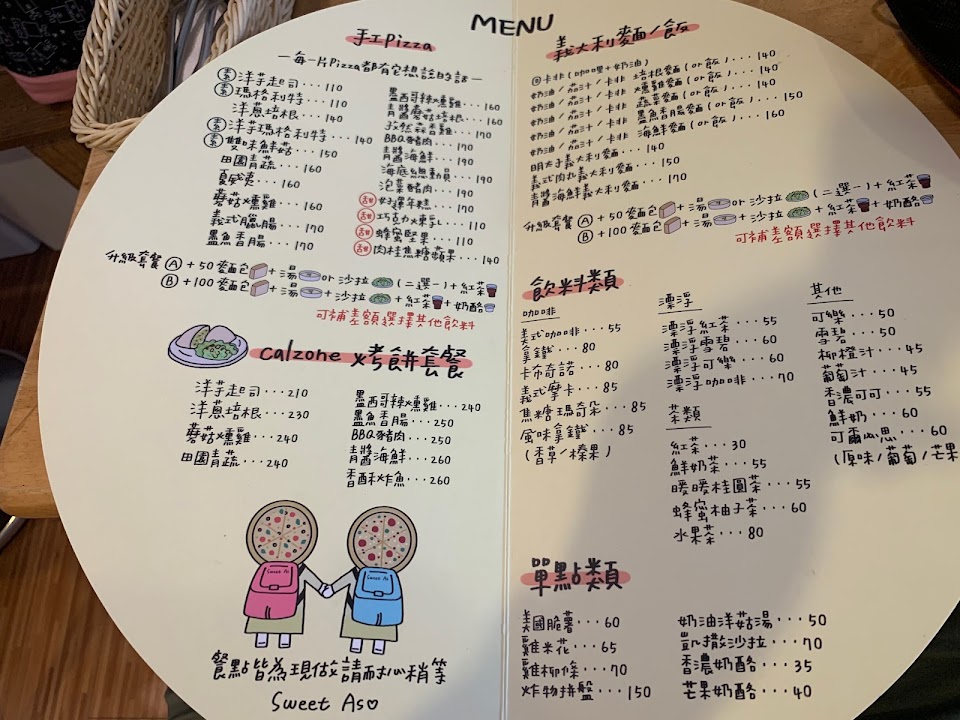 MENU
手工pizza
一每一片Pizza都有它想說的話一
素 洋芋起司...110
素 瑪格利特...110
洋蔥培根...140
素 洋芋瑪格利特...140
素 雙味鮮菇...150
田園青蔬...160
夏威夷...160
蘑菇燻雞...160
義式臘腸...170
鹽魚香腸...170
墨西哥辣燻雞...160
青醬蘑菇培根...160
孜然蒜香雞...170
BBQ豬肉...170
青醬海鮮...190
海底總動員...190
泡菜豬肉...190
甜 好運年糕...170
甜 巧克力燻乳...110
甜 蜂蜜堅果...110
甜 肉桂焦糖蘋果...140
升級套餐 A +50 麵包+湯or沙拉(二選一)+紅茶
B +100 麵包+湯+沙拉+紅茶+奶酪
可補差額選擇其他飲料
calzone 烤餅套餐
洋芋起司...210
洋蔥培根...230
蘑菇燻雞...240
田園青蔬...240
墨西哥辣燻雞...240
鹽魚香腸...250
BBQ豬肉...250
青醬海鮮...260
香酥炸魚...260
Sweet As
Sweet As
餐點皆為現做請耐心稍等
Sweet As♡
義大利麵/飯
卡非(咖哩+奶油)
奶油/茄汁/卡非 培根麵(or飯)...140
奶油/茄汁/卡非 燻雞麵(or飯)...140
奶油/茄汁/卡非 蔬菜麵(or飯)...140
奶油/茄汁/卡非 鹽魚香腸麵(or飯)...150
奶油/茄汁/卡非 海鮮麵(or飯)...160
明太子義大利麵...140
義式肉丸義大利麵...150
青醬海鮮義大利麵...170
升級套餐 A +50 麵包+湯or沙拉(二選一)+紅茶
B +100 麵包+湯+沙拉+紅茶+奶酪
可補差額選擇其他飲料
飲料類
咖啡
美式咖啡...55
拿鐵...80
卡布奇諾...80
義式摩卡...85
焦糖瑪奇朵...85
風味拿鐵...85
(香草/榛果)
漂浮
漂浮紅茶...55
漂浮雪碧...60
漂浮可樂...60
漂浮咖啡...70
茶類
紅茶...30
鮮奶茶...55
暖暖桂圓茶...55
蜂蜜柚子茶...60
水果茶...80
其他
可樂...50
雪碧...50
柳橙汁...45
葡萄汁...45
香濃可可...55
鮮奶...60
可爾必思...60
(原味/葡萄/芒果
單點類
美國脆薯...60
雞米花...65
雞柳條...70
炸物拼盤...150
奶油洋菇湯...50
凱撒沙拉...70
香濃奶酪...35
芒果奶酪...40